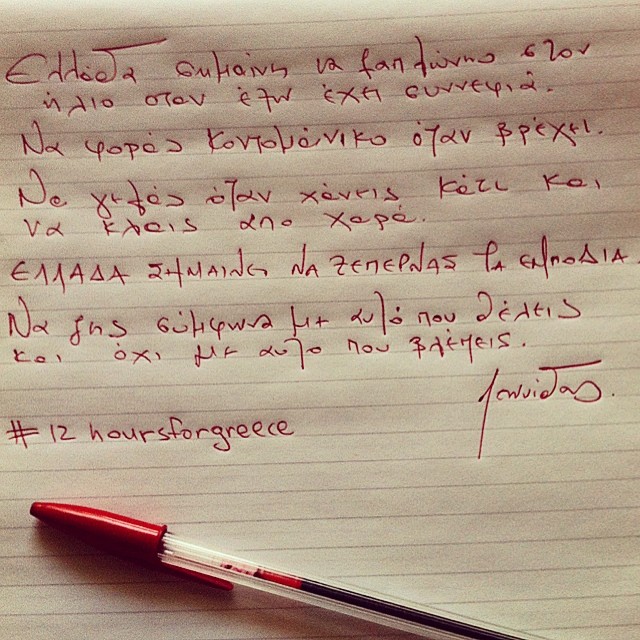 Ελλάδα σημαίνει να ξαπλώνης στον
ήλιο όταν έξω έχει συννεφιά.
Να φοράς κοντομάνικο όταν βρέχει.
Να γελάς όταν χάνεις κάτι και
να κλαις απο χαρά.
ΕΛΛΑΔΑ ΣΗΜΑΙΝΕΙ ΝΑ ΞΕΠΕΡΝΑΣ ΤΑ ΕΜΠΟΔΙΑ.
Να ζης σύμφωνα με αυτό που θέλεις
και όχι με αυτο που βλέπεις.
#12hoursforgreece